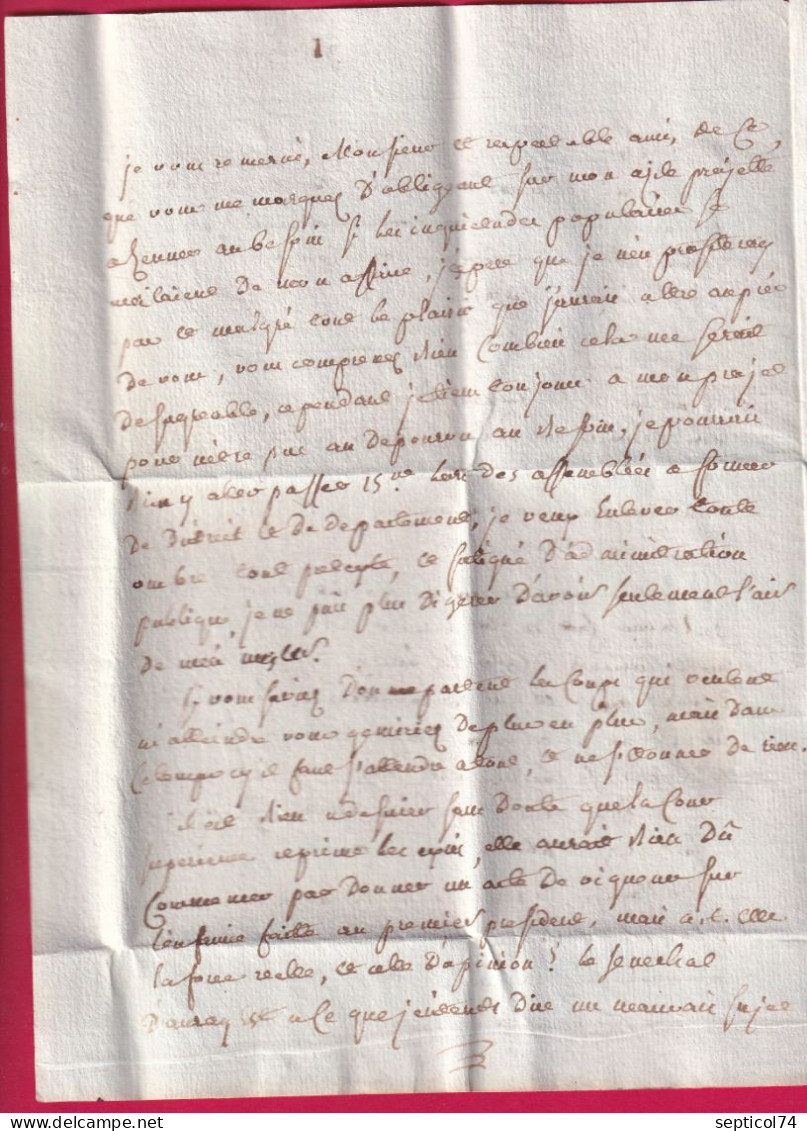 je vous remercie, Monsieur et respectable ami, de ce
que vous me marqués d'obligeant sur mon azile projetté
a Rennes au besoin si les inquietudes populaires se
meloient de mon affaire, j'espere que je n'en profiterai
pas et malgré tout le plaisir que j'aurois a être auprès
de vous, vous comprenes bien combien cela me seroit
desagreable, cependant je tiens toujours a mon projet
pour n'être pas au depourvu au besoin, je pourrois
bien y aller passer 15.ne lors des assemblées a former
de district et de departement, je veux enlever toute
ombre tout pretexte, et fatigué d'administration
publique, je ne puis plus digerer d'avoir seulement l'air
de m'en mesler.
Si vous saviez d'ou partent les coups qui veulent
m'atteindre vous gemiriez de plus en plus, mais dans
ce temps cy il faut s'attendre a tout, et ne s'etonner de rien.
il est bien a desirer sans doute que la Cour
superieure reprime les , elle auroit bien dû
commencer par donner un acte de vigueur sur
l'infamie faite au premier president, mais a-t-elle
la force reelle, et celle d'opinion? le senechal
d'auray est a ce que j'entends dire un mauvais sujet
septicol74